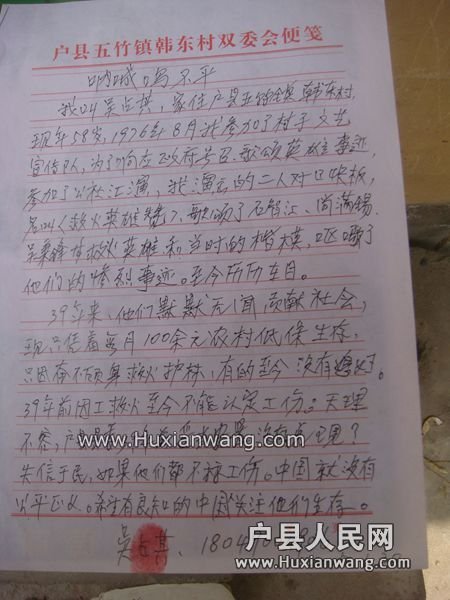 户县五竹镇韩东村双委会便笺
呐喊,鸣不平
我叫吴占其,家住户县五竹镇韩东村,
现年58岁,1976年8月我参加了村子文艺
宣传队,为了响应政府号召,歌颂英雄事迹,
参加了公社汇演,我演出的二人对口快板,
名叫《救火英雄赞》,歌颂了石智江、尚满锡、
救火英雄和当时的楷模,讴歌了
他们的惨烈事迹。至今历历在目。
39年来,他们默默无闻,贡献社会,
现只凭着每月100余元农村低保生存,
只因奋不顾身救火护林,有的至今没有
39年前因工救火至今不能认定工伤。天理
不容,
失信于民,如果他们都不称工伤。中国就没有
公平正义。希望有良知的中国关注他们生存。
吴占其、
www.Huxianwang.com
户县人民网
www.Huxianwang.com